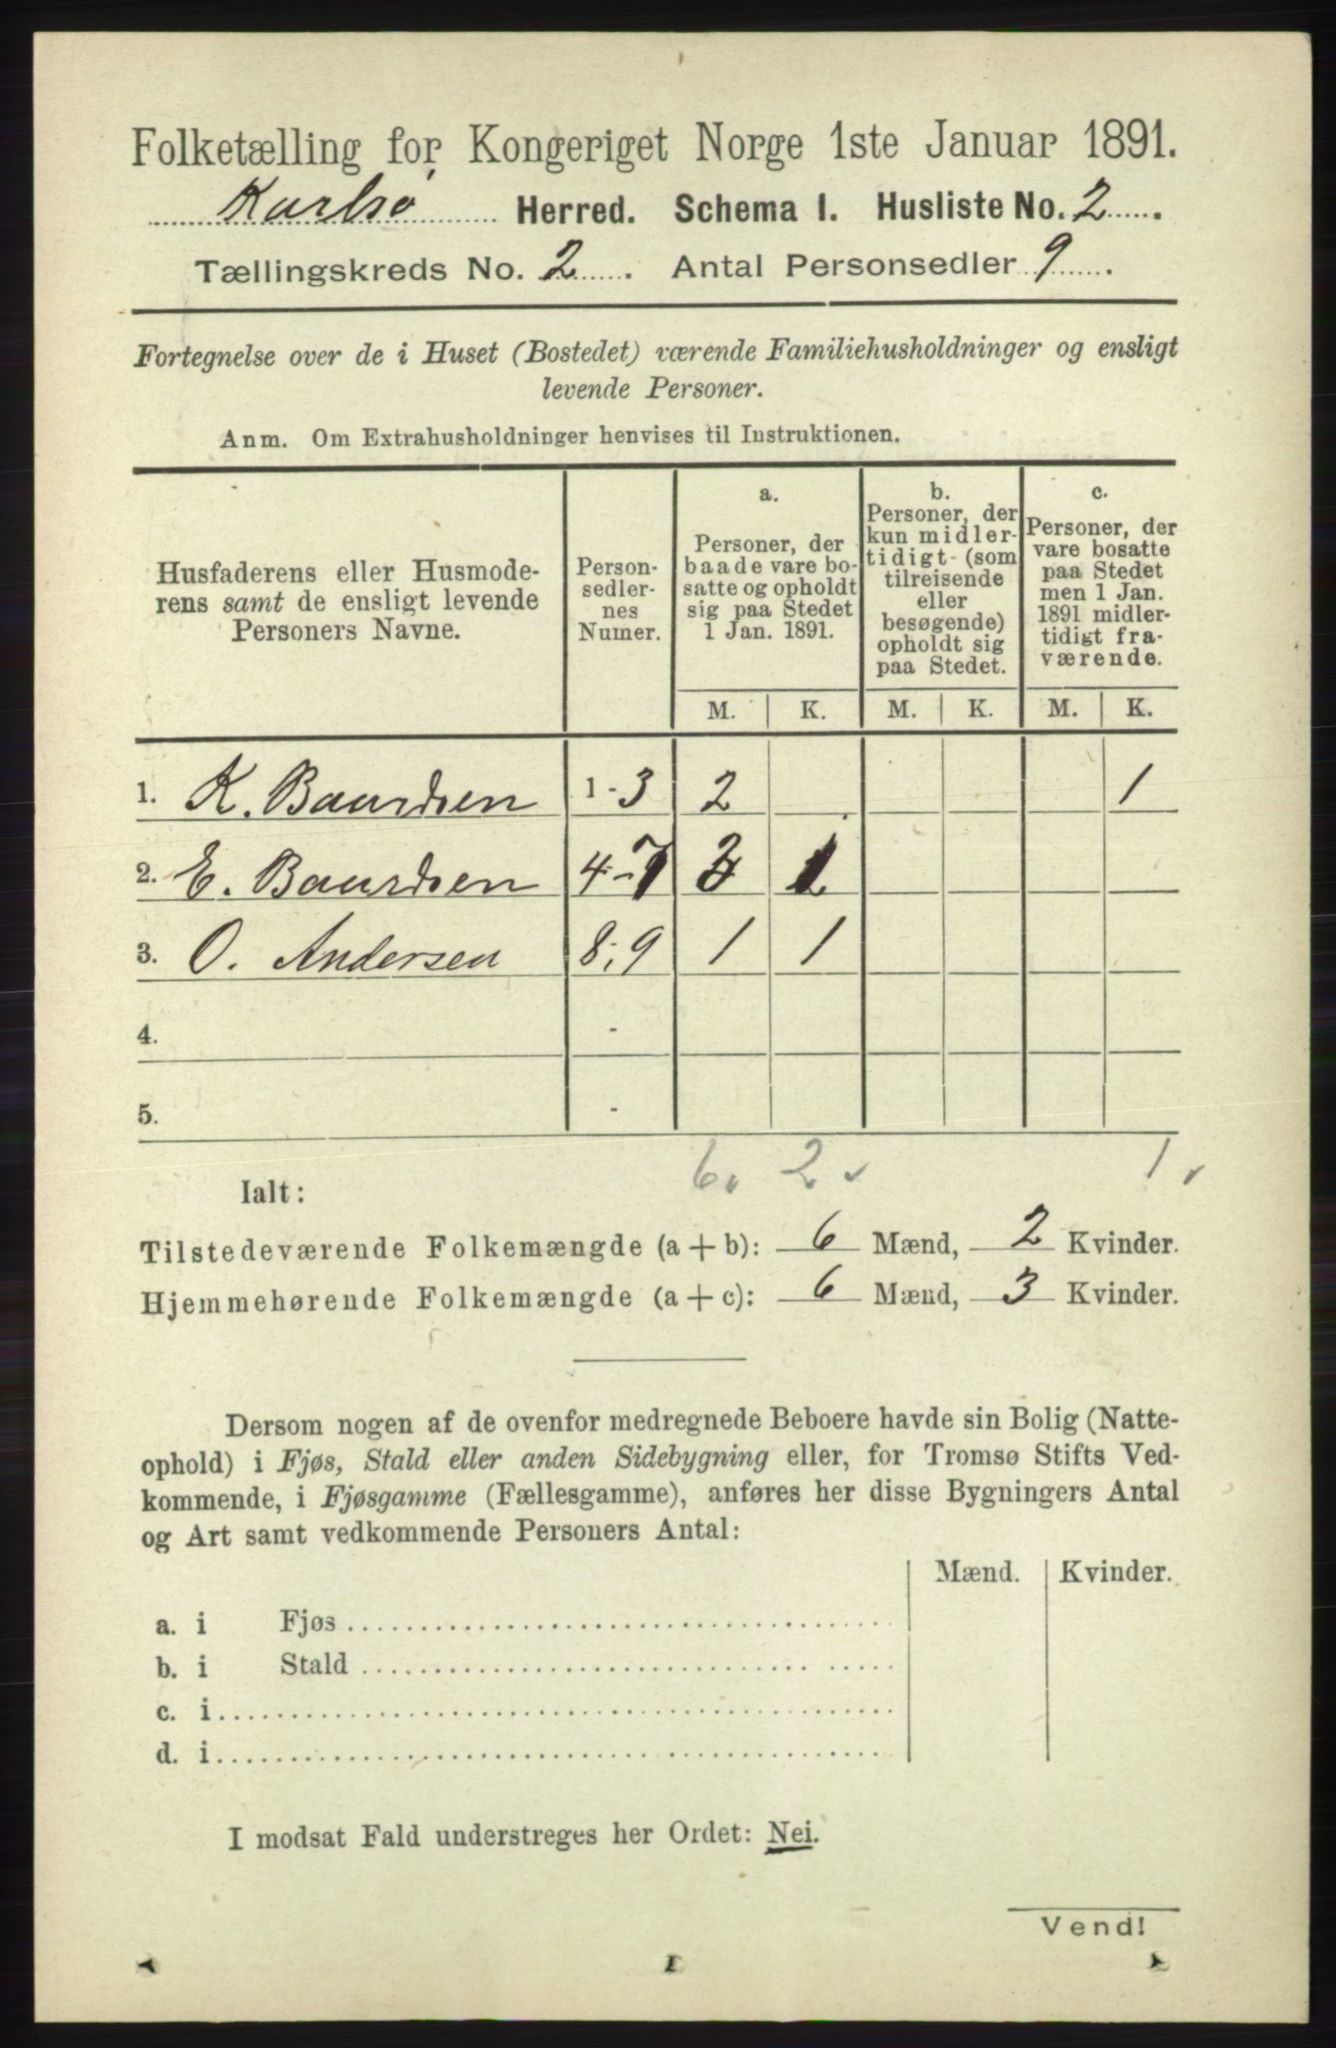 Folketælling for Kongeriget Norge 1ste Januar 1891.
Karlsø Herred. Schema I. Husliste No. 2.
Tællingskreds No. 2. Antal Personsedler 9.
Fortegnelse over de i Huset (Bostedet) værende Familiehusholdninger og ensligt
levende Personer.
Anm. Om Extrahusholdninger henvises til Instruktionen.
Husfaderens eller Husmode-
rens samt de ensligt levende
Personers Navne.
Person-
sedler-
nes
Numer.
a.
Personer, der
baade vare bo-
satte og opholdt
sig paa Stedet
1 Jan. 1891.
b.
Personer, der
kun midler-
tidigt (som
tilreisende
eller
besøgende)
opholdt sig
paa Stedet.
c.
Personer, der
vare bosatte
paa Stedet
men 1 Jan.
1891 midler-
tidigt fra-
værende.
M. K. M. K. M. K.
1. K. Baardsen 1-3 2 1
2. E. Baardsen 4-7 3 1
3. O. Andersen 8-9 1 1
4. -
5. -
6 2 1
Ialt:
Tilstedeværende Folkemængde (a + b): 6 Mænd, 2 Kvinder.
Hjemmehørende Folkemængde (a + c): 6 Mænd, 3 Kvinder.
Dersom nogen af de ovenfor medregnede Beboere havde sin Bolig (Natte-
ophold) i Fjøs, Stald eller anden Sidebygning eller, for Tromsø Stifts Ved-
kommende, i Fjøsgamme (Fællesgamme), anføres her disse Bygningers Antal
og Art samt vedkommende Personers Antal:
Mænd. Kvinder.
a. i Fjøs
b. i Stald
c. i
d. i
I modsat Fald understreges her Ordet: Nei.
Vend!